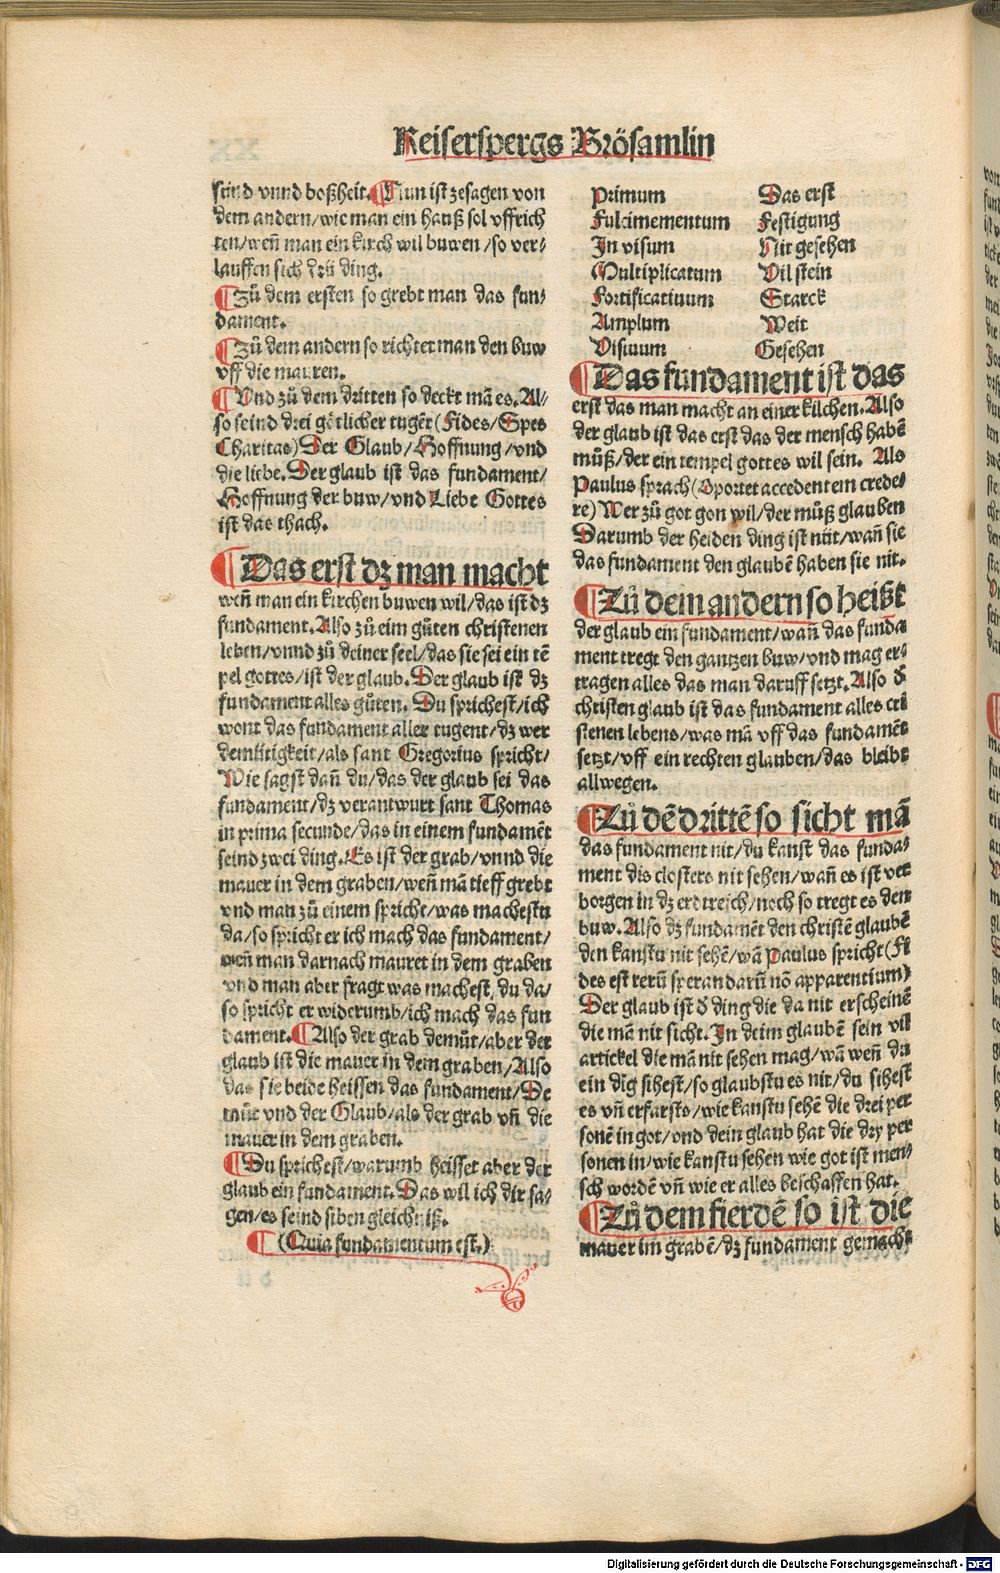 Keiserspergs Brösamlin
sünd vnnd boßheit. ¶Nun ist zesagen von
dem andern/wie man ein hauß sol vffrich
ten/weñ man ein kirch wil buwen/so ver⸗
lauffen sich drü ding.
¶Zů dem ersten so grebt man das fun⸗
dament.
¶Zů dem andern so richtet man den buw
vff die mauren.
¶Vnd zů dem dritten so deckt mã es. Al⸗
so seind drei götlicher tugẽt (Fides/Spes
Charitas) Der Glaub/Hoffnung/vnd
die liebe. Der glaub ist das fundament/
Hoffnung der buw/vnd Liebe Gottes
ist das thach.
¶Das erst dz man macht
weñ man ein kirchen buwen wil/das ist dz
fundament. Also zů eim gůten christenen
leben/vnnd zů deiner seel/das sie sei ein tẽ
pel gottes/ist der glaub. Der glaub ist dz
fundament alles gůten. Du sprichest/ich
wont das fundament aller tugent/dz wer
demütigkeit/als sant Gregorius spricht/
Wie sagst dañ du/das der glaub sei das
fundament/dz verantwurt sant Thomas
in prima secunde/das in einem fundamẽt
seind zwei ding. Es ist der grab/vnnd die
mauer in dem graben/weñ mã tieff grebt
vnd man zů einem spricht/was machestu
da/so spricht er ich mach das fundament/
weñ man darnach mauret in dem graben
vnd man aber fragt was machest du da/
so spricht er widerumb/ich mach das fun
dament. ¶Also der grab demůt/aber der
glaub ist die mauer in dem graben/Also
das sie beide heissen das fundament/De
můt vnd der Glaub/als der grab vñ die
mauer in dem graben.
¶Du sprichest/warumb heisset aber der
glaub ein fundament. Das wil ich dir sa⸗
gen/es seind siben gleichniß.
¶(Quia fundamentum est.)
Primum Das erst
Fulcimementum Festigung
In visum Nit gesehen
Multiplicatum Vil stein
Fortificatiuum Starck
Amplum Weit
Visiuum Gesehen
¶Das fundament ist das
erst das man macht an einer kilchen. Also
der glaub ist das erst das der mensch habẽ
můß/der ein tempel gottes wil sein. Als
Paulus sprach (Oportet accedentem crede⸗
re) Wer zů got gon wil/der můß glauben
Darumb der heiden ding ist nüt/wañ sie
das fundament den glaubẽ haben sie nit.
¶Zů dem andern so heißt
der glaub ein fundament/wañ das funda
ment tregt den gantzen buw/vnd mag er⸗
tragen alles das man daruff setzt. Also ð
christen glaub ist das fundament alles cri
stenen lebens/was mã vff das fundamẽt
setzt/vff ein rechten glauben/das bleibt
allwegen.
¶Zů dẽ drittẽ so sicht mã
das fundament nit/du kanst das funda⸗
ment dis closters nit sehen/wañ es ist ver
borgen in dz erdtreich/noch so tregt es den
buw. Also dz fundamẽt den christẽ glaubẽ
den kanstu nit sehẽ/wã Paulus spricht (Fi
des est rerũ sperandarũ nõ apparentium)
Der glaub ist ð ding die da nit erscheinẽ
die mã nit sicht. In deim glaubẽ sein vil
artickel die mã nit sehen mag/wã weñ du
ein dĩg sihest/so glaubstu es nit/du sihest
es vñ erfarsts/wie kanstu sehẽ die drei per
sonẽ in got/vnd dein glaub hat die dry per
sonen in/wie kanstu sehen wie got ist men⸗
sch wordẽ vñ wie er alles beschaffen hat.
¶Zů dem fierdẽ so ist die
mauer im grabẽ/dz fundament gemacht
Digitalisierung gefördert durch die Deutsche Forschungsgemeinschaft - DFG